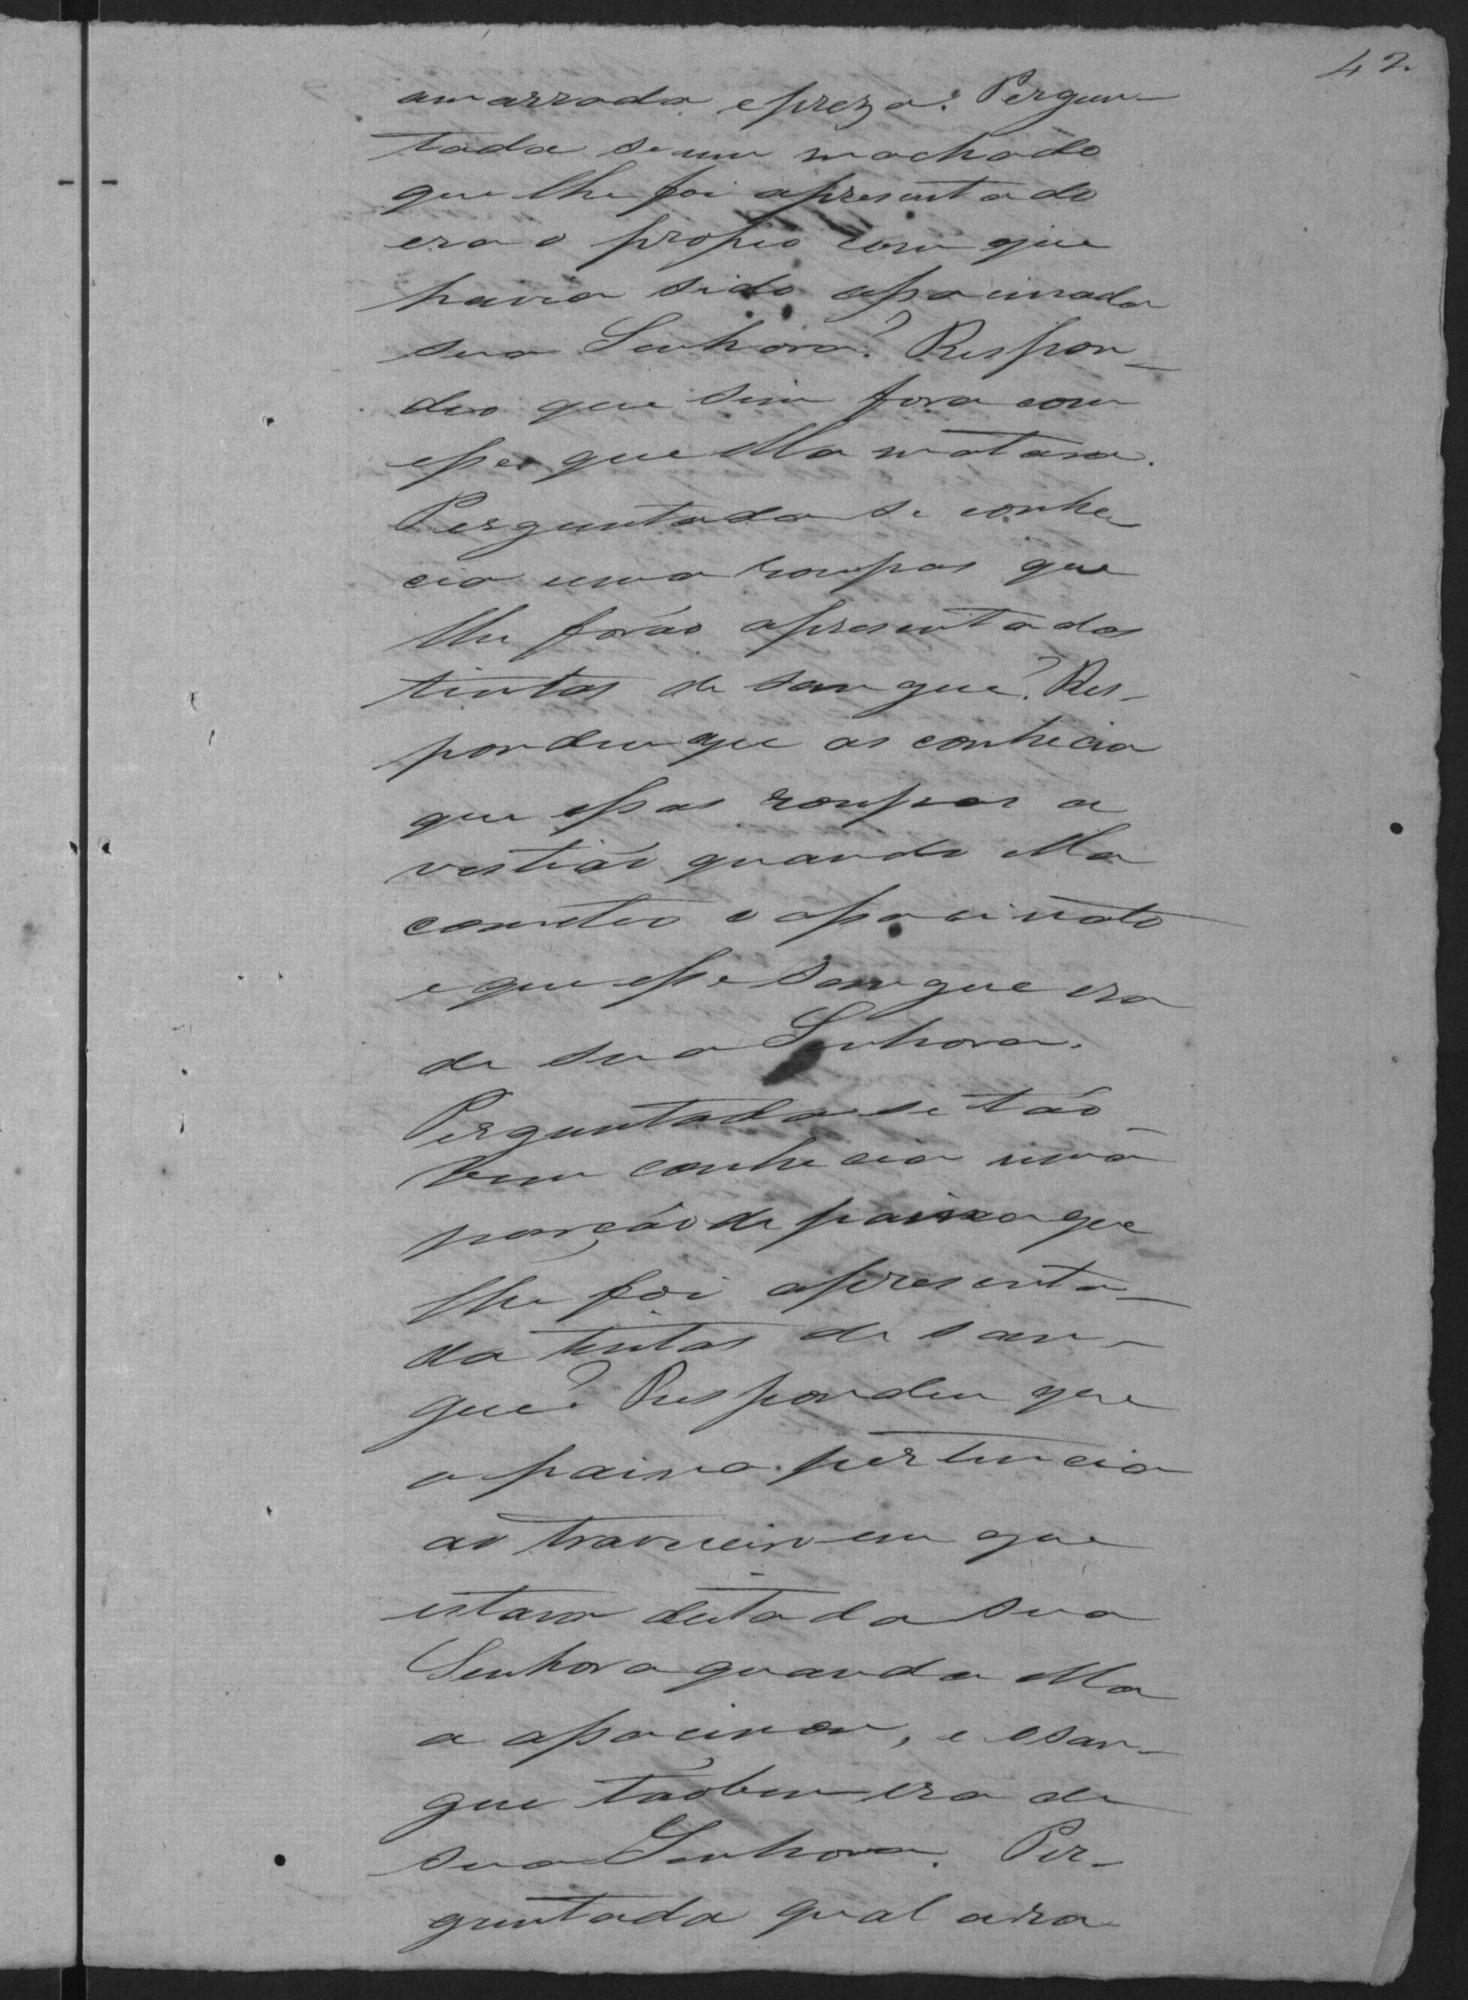 42
amarrada e preza. Pergun-
tada se um machado
que lhe foi apresentado
era o proprio com que
havia sido assacinada
sua Senhora? Respon-
deo que sim fora com
esse que Ella matara.
Perguntada se conhe
cia uma roupas que
lhe forão apresentadas
tintas de sangue? Res-
pondeu que as conhecia
que essas roupas a
vestião quando Ella
cometeo o assacinato
e que esse sangue era
de sua Senhora.
Perguntada se tão
bem conhecia uma
porção de paina que
lhe foi apresenta-
da tintas de san-
gue? Respondeu que
a paina pertencia
ao travieceiro em que
estava deitada sua
Senhora quando Ella
a assacinou, e o san-
gue tãobem era de
sua Senhora. Per-
guntada qual a ra